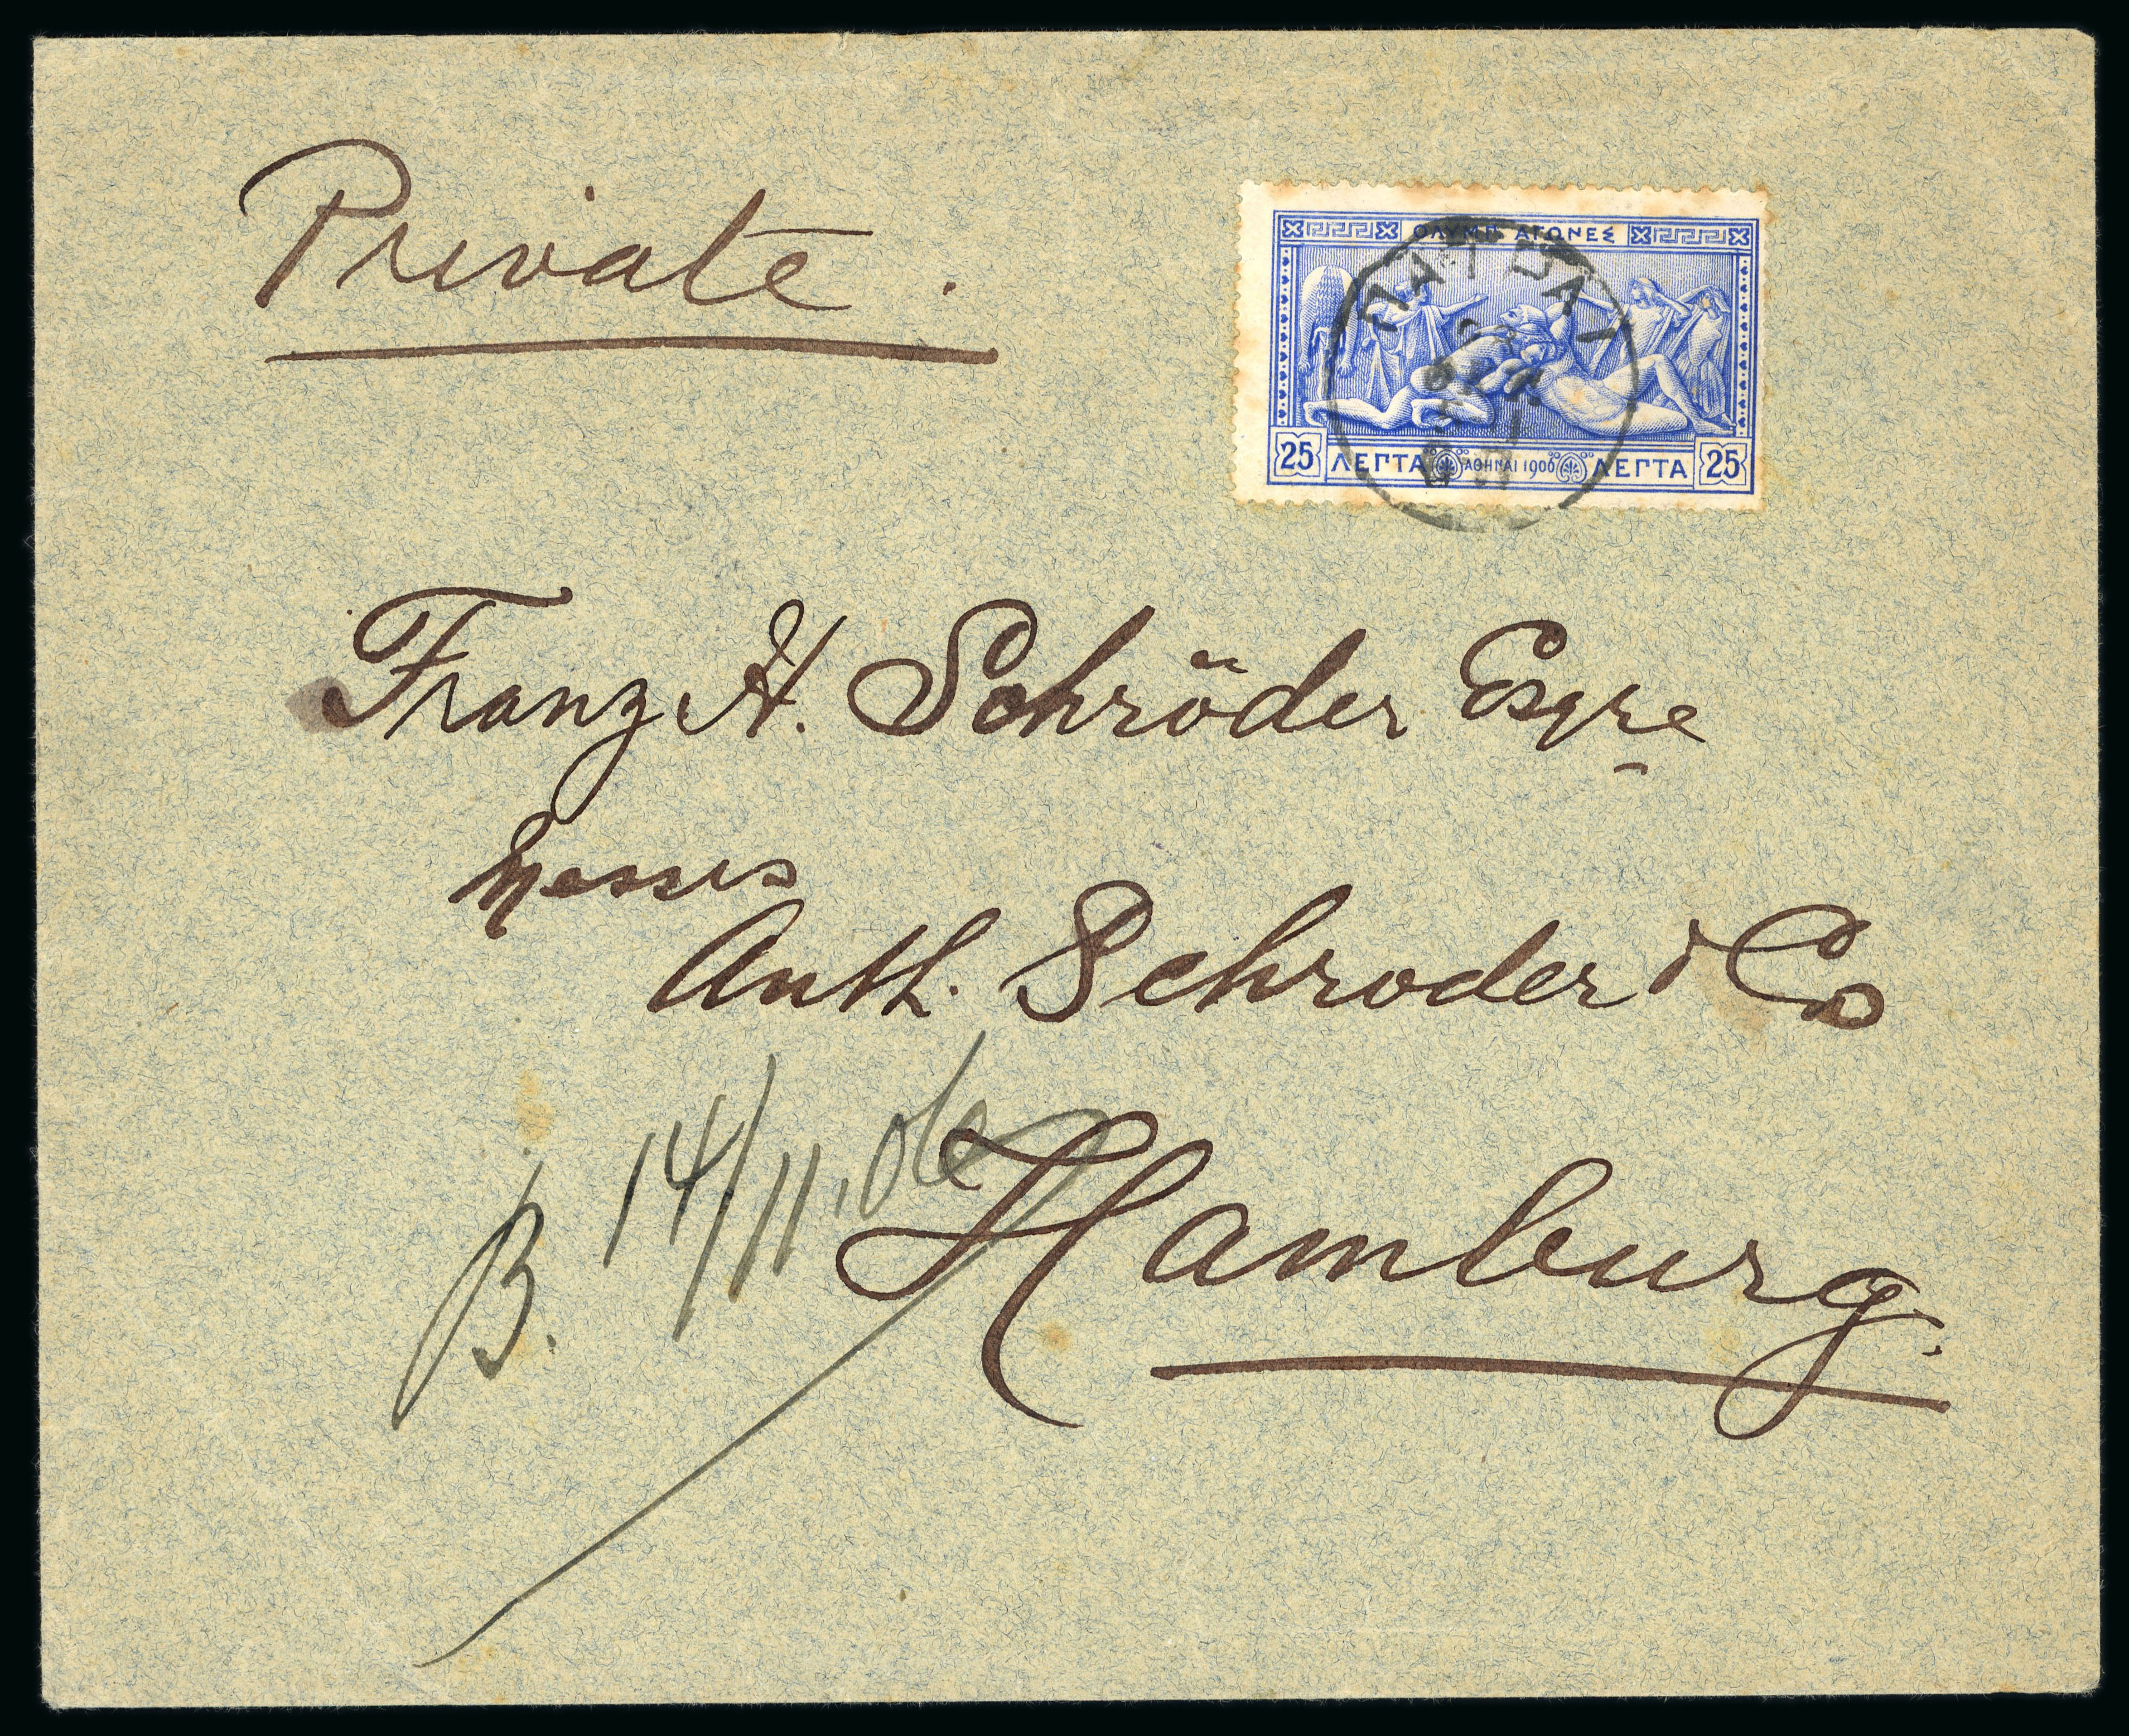 Private.
ΟΛΥΜΠ. ΑΓΩΝΕΣ
25 ΛΕΠΤΑ ΑΘΗΝΑΙ 1906 ΛΕΠΤΑ 25
Franz H. Schröder Esqre
Messrs
Anth. Schroder & Co
B. 14/11.06
Hamburg.